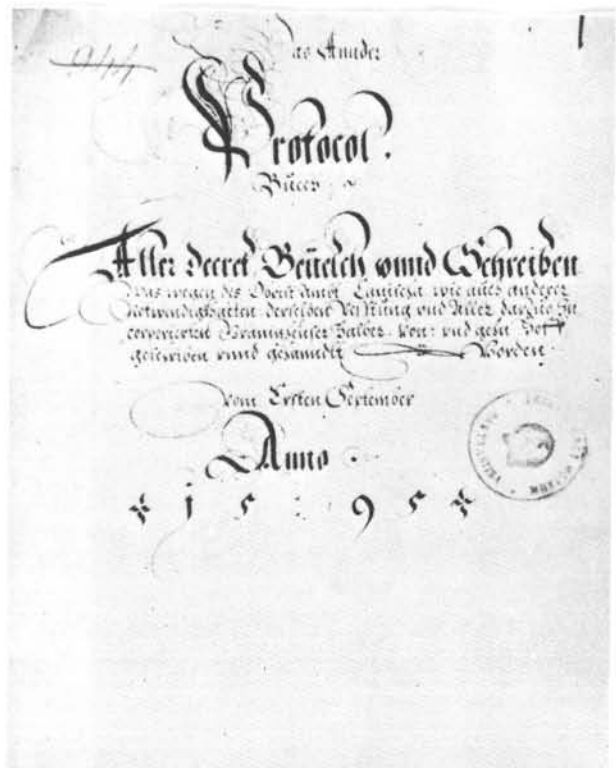 944
1
Das Annder
Protocol.
Buech
Aller Decret Beuelch vnnd Schreiben
Was wegen des Obrist Ambt Canischa wie auch anderer
Notwendigkhaiten derselben Vesstung vnd Aller darzue In
corporierten Granitzheuser halber von: vnd gehn Hof
geschriben vnnd gesanndt Worden
vom Ersten September
Anno
1595